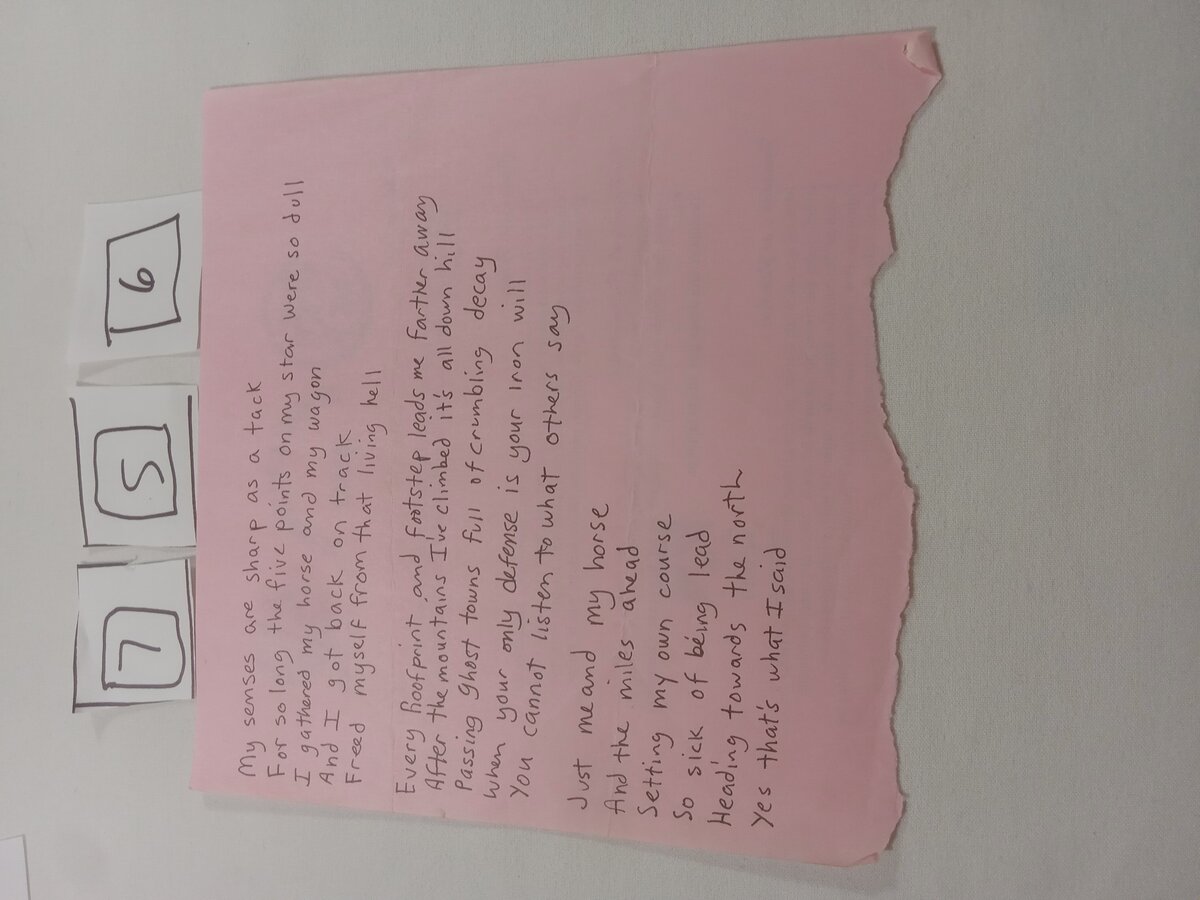 7 5 6
My senses are sharp as a tack
For so long the five points on my star were so dull
I gathered my horse and my wagon
And I got back on track
Freed myself from that living hell
Every hoofprint and footstep leads me farther away
After the mountains I've climbed it's all down hill
Passing ghost towns full of crumbling decay
When your only defense is your iron will
You cannot listen to what others say
Just me and my horse
And the miles ahead
Setting my own course
So sick of being lead
Heading towards the north
Yes that's what I said